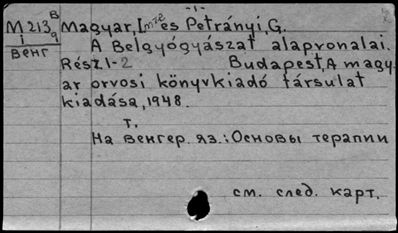 -1-
М 213 В 9 Magyar, Imre és Petrányi, G.
1 A Belgyógyászat alapvonalai.
Венг Rész 1-2 Budapest, A magy-
ar orvosi könyvkiadó társulat
kiadása, 1948.
т.
На венгер. яз.: Основы терапии
см. след. карт.